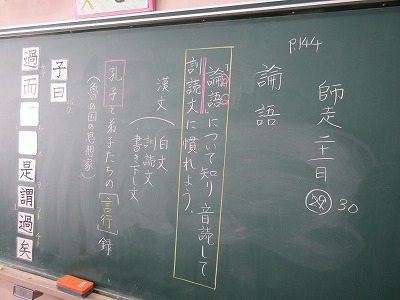 P.144
師走 二十一日
30
論語
「論語」について知り音読して
訓読文に慣れよう。
漢文
白文
訓読文
書き下し文
孔子と弟子たちの［言行］録
（魯の国の思想家）
子曰
過而 是謂過矣